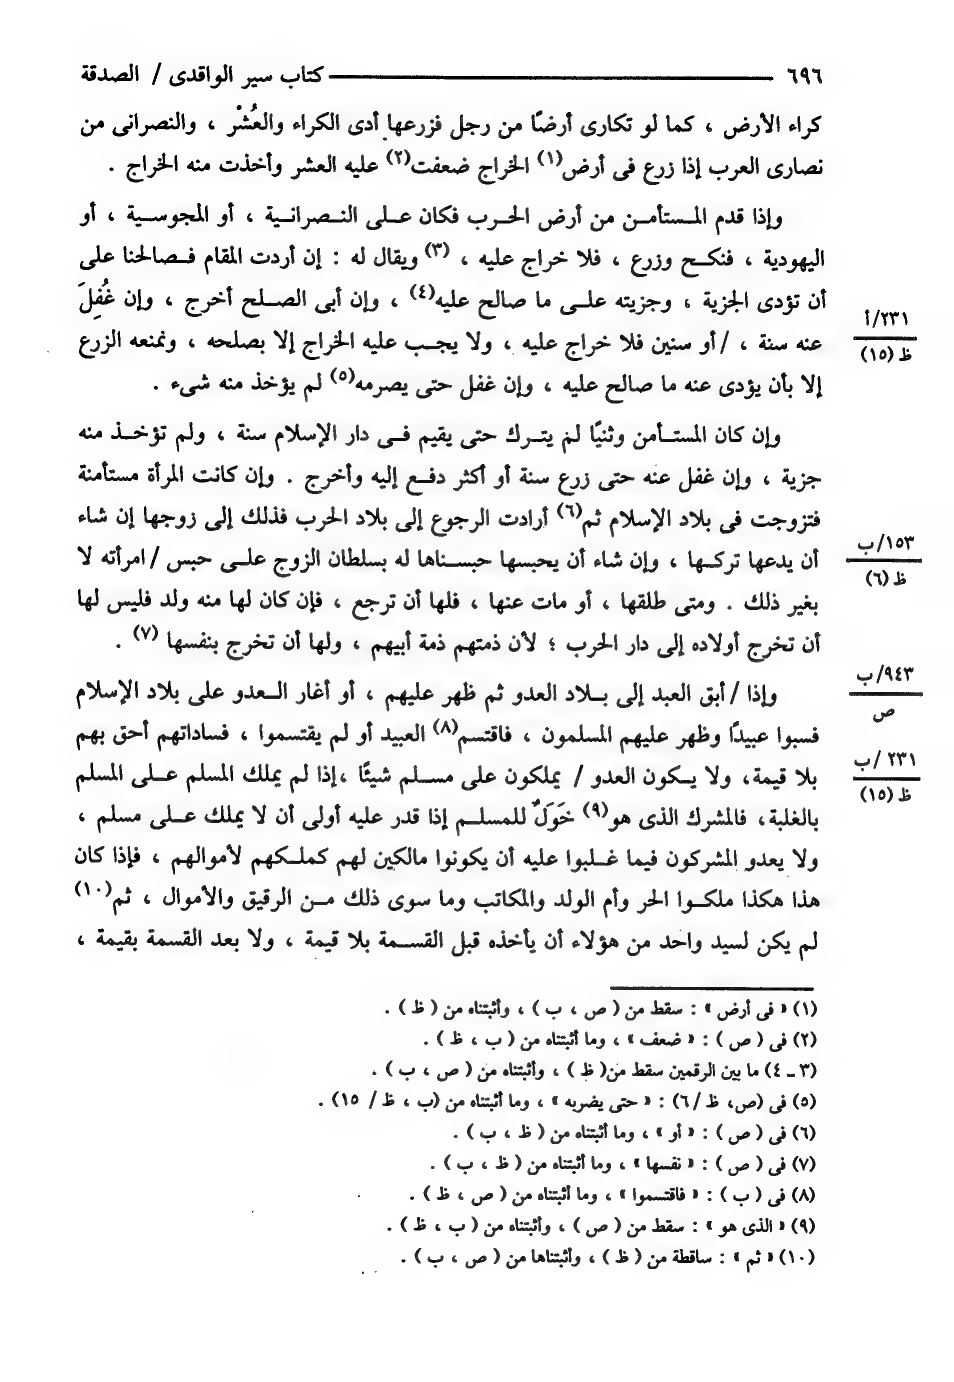 ٦٩٦ ــــــــــــــــــ كتاب سير الواقدى / الصدقة
كراء الأرض ، كما لو تكارى أرضًا من رجل فزرعها أدى الكراء والعُشْر ، والنصرانى من
نصارى العرب إذا زرع فى أرض(١) الخراج ضعفت(٢) عليه العشر وأخذت منه الخراج .
وإذا قدم المستأمن من أرض الحرب فكان على النصرانية ، أو المجوسية ، أو
اليهودية ، فنكح وزرع ، فلا خراج عليه ، (٣) ويقال له : إن أردت المقام فصالحنا على
أن تؤدى الجزية ، وجزيته على ما صالح عليه(٤) ، وإن أبى الصلح أخرج ، وإن غُفِلَ
٢٣١/أ
عنه سنة ، /أو سنين فلا خراج عليه ، ولا يجب عليه الخراج إلا بصلحه ، ونمنعه الزرع
ظ (١٥)
إلا بأن يؤدى عنه ما صالح عليه ، وإن غفل حتى يصرمه(٥) لم يؤخذ منه شىء .
وإن كان المستأمن وثنيًا لم يترك حتى يقيم فى دار الإسلام سنة ، ولم تؤخذ منه
جزية ، وإن غفل عنه حتى زرع سنة أو أكثر دفع إليه وأخرج . وإن كانت المرأة مستأمنة
فتزوجت فى بلاد الإسلام ثم(٦) أرادت الرجوع إلى بلاد الحرب فذلك إلى زوجها إن شاء
١٥٣/ب
أن يدعها تركها ، وإن شاء أن يحبسها حبسناها له بسلطان الزوج على حبس /امرأته لا
ظ (٦)
بغير ذلك . ومتى طلقها ، أو مات عنها ، فلها أن ترجع ، فإن كان لها منه ولد فليس لها
أن تخرج أولاده إلى دار الحرب ؛ لأن ذمتهم ذمة أبيهم ، ولها أن تخرج بنفسها (٧) .
٩٤٣/ب
وإذا /أبق العبد إلى بلاد العدو ثم ظهر عليهم ، أو أغار العدو على بلاد الإسلام
ص
فسبوا عبيدًا وظهر عليهم المسلمون ، فاقتسم(٨) العبيد أو لم يقتسموا ، فساداتهم أحق بهم
٢٣١ /ب
بلا قيمة، ولا يكون العدو / يملكون على مسلم شيئًا ،إذا لم يملك المسلم على المسلم
ظ (١٥)
بالغلبة، فالمشرك الذى هو(٩) خَوَلٌ للمسلم إذا قدر عليه أولى أن لا يملك على مسلم ،
ولا يعدو المشركون فيما غلبوا عليه أن يكونوا مالكين لهم كملكهم لأموالهم ، فإذا كان
هذا هكذا ملكوا الحر وأم الولد والمكاتب وما سوى ذلك من الرقيق والأموال ، ثم(١٠)
لم يكن لسيد واحد من هؤلاء أن يأخذه قبل القسمة بلا قيمة ، ولا بعد القسمة بقيمة ،
(١) « فى أرض » : سقط من ( ص ، ب ) ، وأثبتناه من ( ظ ) .
(٢) فى ( ص ) : « ضعف » ، وما أثبتناه من ( ب ، ظ ) .
(٣ ـ ٤) ما بين الرقمين سقط من( ظ ) ، وأثبتناه من ( ص ، ب ) .
(٥) فى (ص، ظ /٦) : « حتى يضربه » ، وما أثبتناه من (ب ، ظ / ١٥) .
(٦) فى ( ص ) : « أو » ، وما أثبتناه من ( ظ ، ب ) .
(٧) فى ( ص ) : « نفسها » ، وما أثبتناه من ( ظ ، ب ) .
(٨) فى ( ب ) : « فاقتسموا » ، وما أثبتناه من ( ص ، ظ ) .
(٩) « الذى هو » : سقط من ( ص ) ، وأثبتناه من ( ب ، ظ ) .
(١٠) « ثم » : ساقطة من ( ظ ) ، وأثبتناها من ( ص ، ب ) .